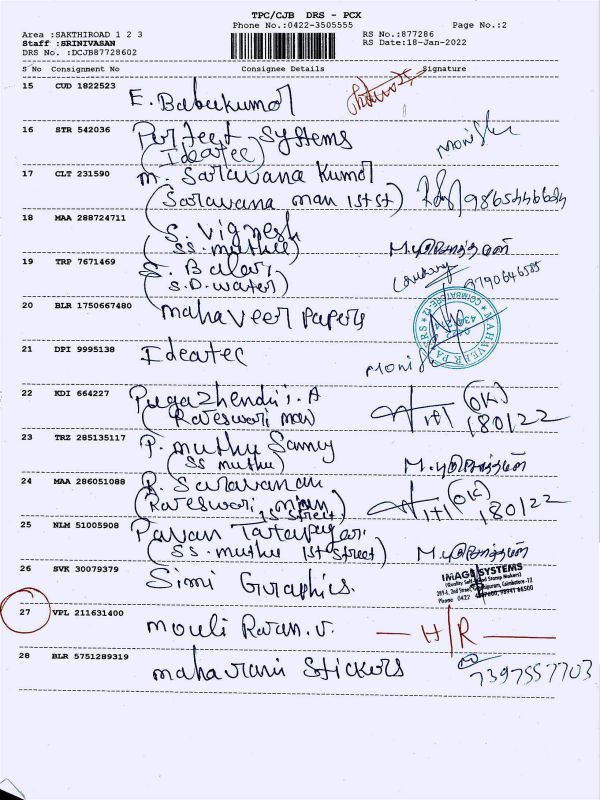 TPC/CJB DRS - PCX
Phone No.:0422-3505555 Page No.:2
Area :SAKTHIROAD 1 2 3 RS No.:877286
Staff :SRINIVASAN RS Date:18-Jan-2022
DRS No. :DCJB87728602
S No Consignment No Consignee Details Signature
15 CUD 1822523 E. Babukumar
16 STR 542036 Perfect Systems
(Ideatec)
17 CLT 231590 M. Saravana Kumar
(Saravana man 1st st)
18 MAA 288724711 S. Vignesh
(SS. muthu)
19 TRP 7671469 S. Balaji
(S.D. water) 9790646585
20 BLR 1750667480 mahaveer papers
MAHAVEER PAPERS COIMBATORE-12
21 DPI 9995138 Ideatec
22 KDI 664227 Pugazhendhi. A (OK)
(Rajeswari man) 180122
23 TRZ 285135117 P. muthu Samy
(SS muthu)
24 MAA 286051088 R. Saravanan (OK)
(Rajeswari man 180122
1st street)
25 NLM 51005908 Pavan
(SS. muthu 1st Street)
26 SVK 30079379 Simi Graphics.
IMAGE SYSTEMS
27 VPL 211631400 Mouli Rajan. V. H/R
28 BLR 5751289319 maharani Stickers 7397557703